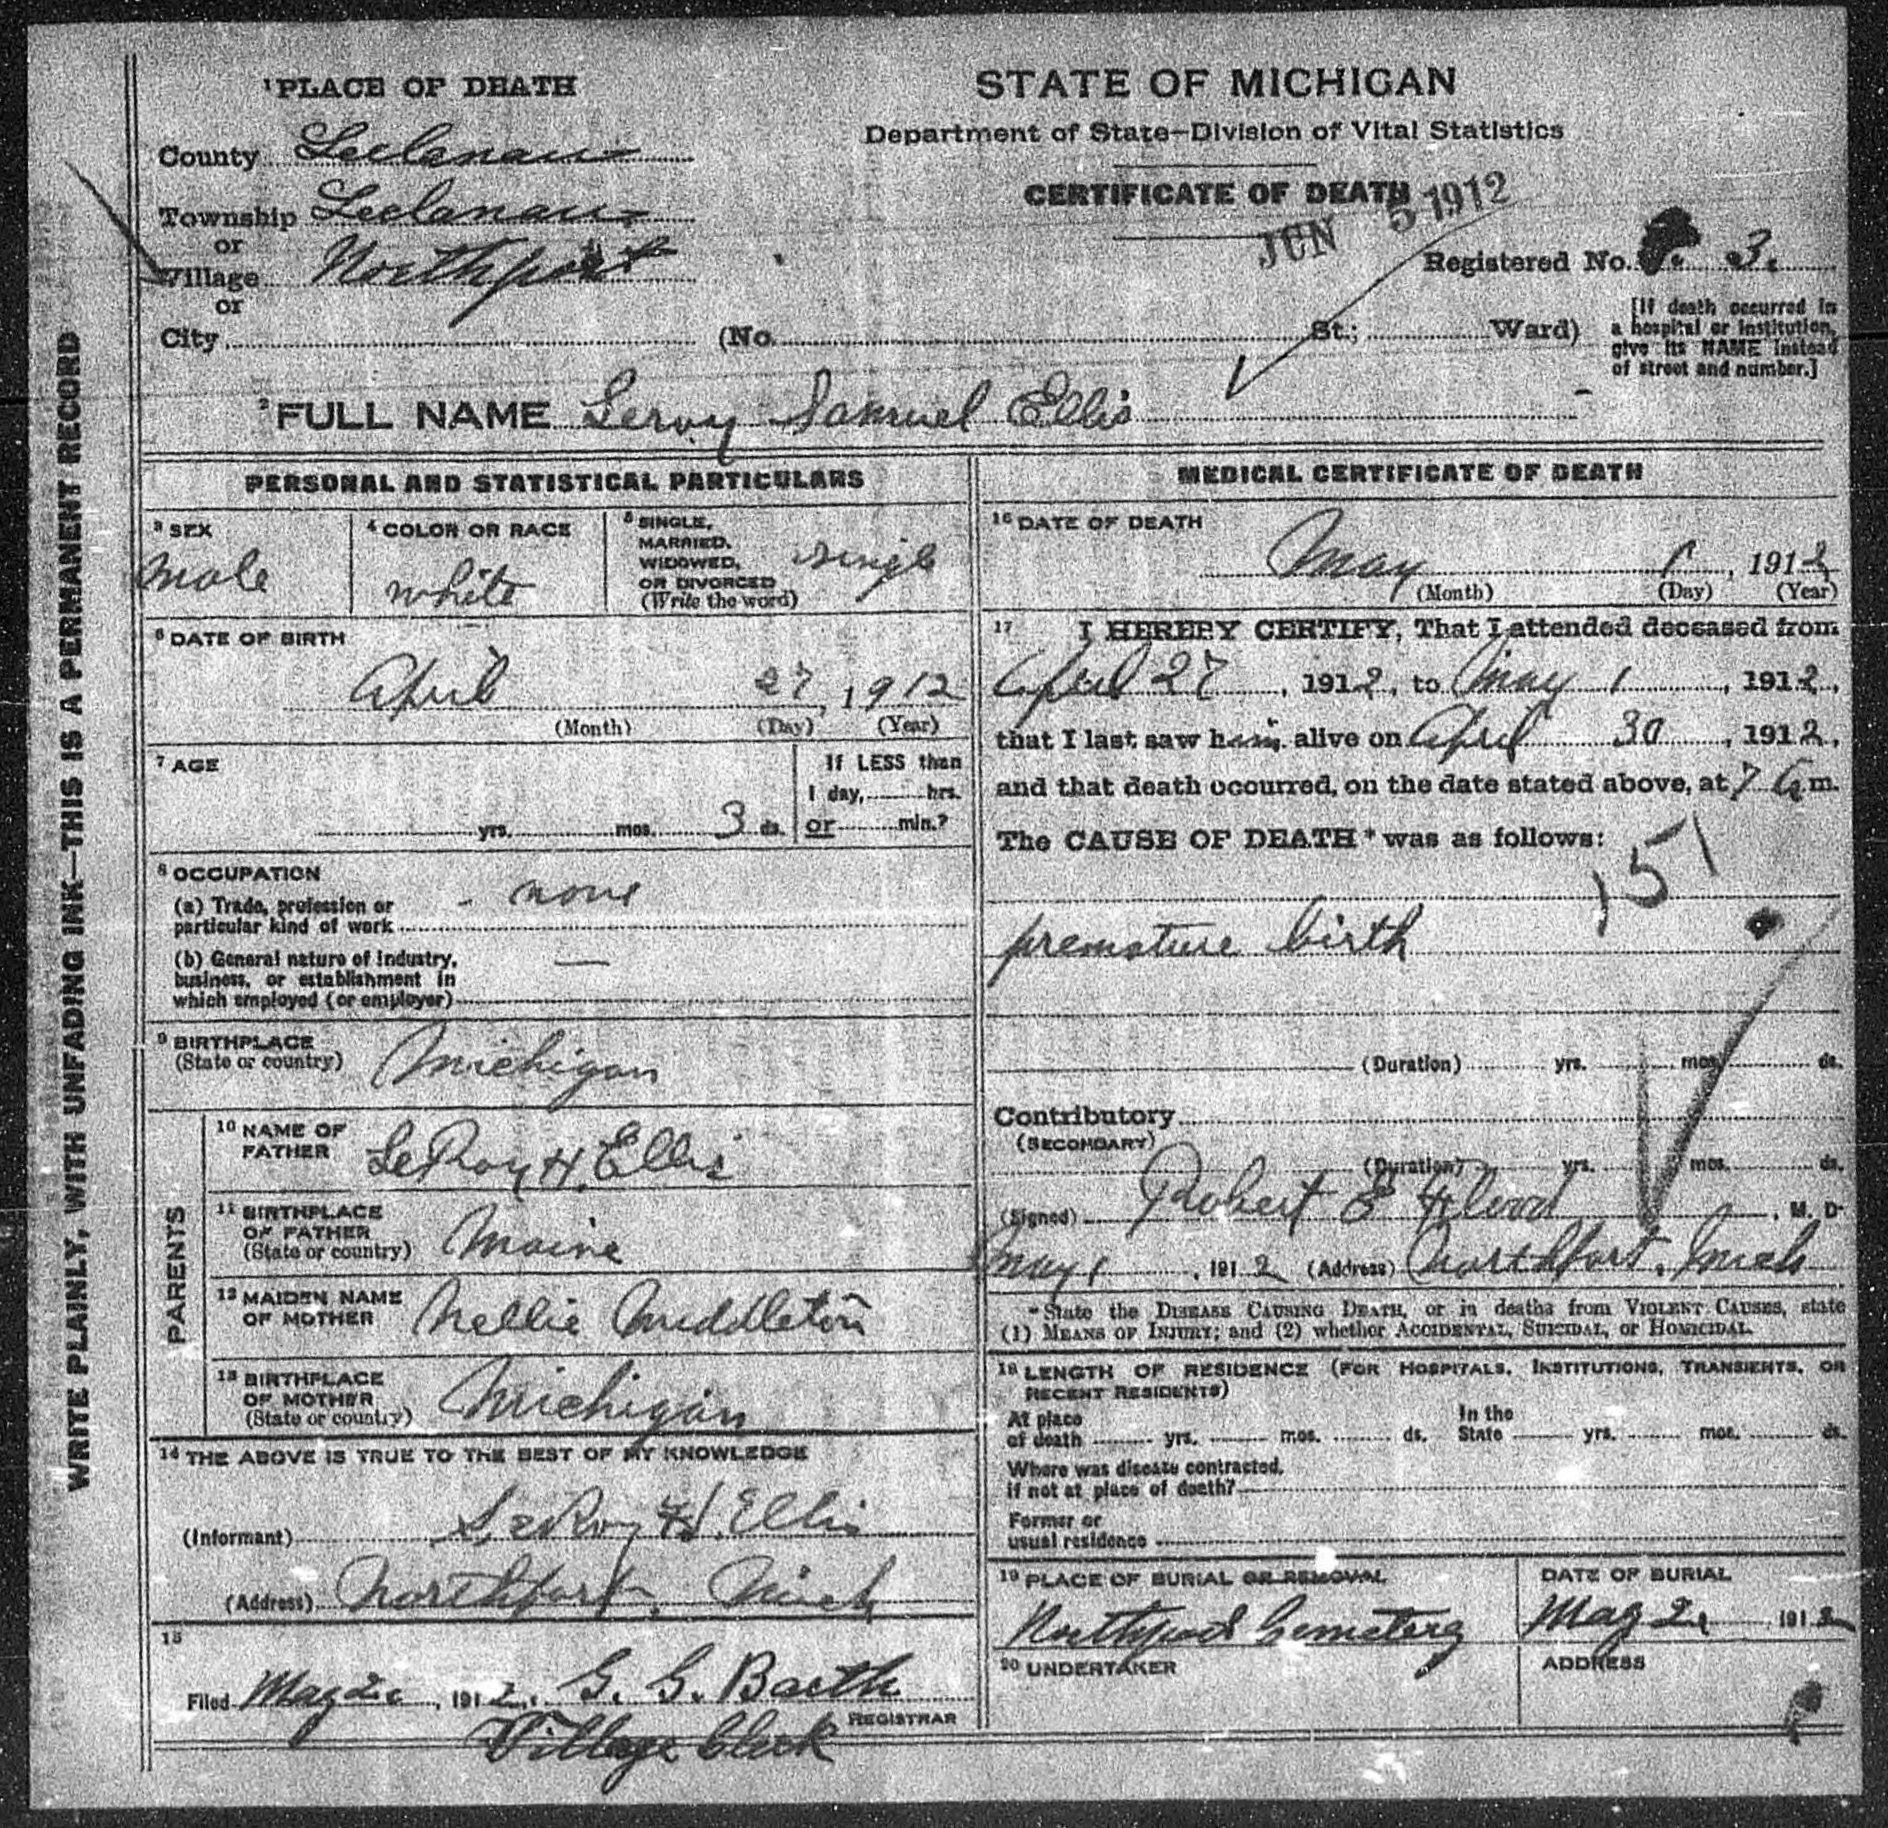 WRITE PLAINLY, WITH UNFADING INK—THIS IS A PERMANENT RECORD
1 PLACE OF DEATH
County Leelanau
Township Leelanau
or
Village Northport
or
City (No. St.; Ward)
STATE OF MICHIGAN
Department of State—Division of Vital Statistics
CERTIFICATE OF DEATH
JUN 5 1912
Registered No. 3.
[If death occurred in
a hospital or institution,
give its NAME instead
of street and number.]
2 FULL NAME Leroy Samuel Ellis
PERSONAL AND STATISTICAL PARTICULARS
3 SEX
Male
4 COLOR OR RACE
White
5 SINGLE,
MARRIED,
WIDOWED,
OR DIVORCED
(Write the word)
Single
6 DATE OF BIRTH
April 27, 1912
(Month) (Day) (Year)
7 AGE
yrs. mos. 3 ds.
If LESS than
1 day, hrs.
or min.?
8 OCCUPATION
(a) Trade, profession or
particular kind of work - none
(b) General nature of Industry,
business, or establishment in
which employed (or employer) —
9 BIRTHPLACE
(State or country) Michigan
PARENTS
10 NAME OF
FATHER LeRoy H. Ellis
11 BIRTHPLACE
OF FATHER
(State or country) Maine
12 MAIDEN NAME
OF MOTHER Nellie Middleton
13 BIRTHPLACE
OF MOTHER
(State or country) Michigan
14 THE ABOVE IS TRUE TO THE BEST OF MY KNOWLEDGE
(Informant) LeRoy H. Ellis
(Address) Northport, Mich
15
Filed May 2, 1912, G. G. Barth
REGISTRAR
Village Clerk
MEDICAL CERTIFICATE OF DEATH
16 DATE OF DEATH
May 1, 1912
(Month) (Day) (Year)
17 I HEREBY CERTIFY, That I attended deceased from
April 27, 1912, to May 1, 1912,
that I last saw him alive on April 30, 1912,
and that death occurred, on the date stated above, at 7 a m.
The CAUSE OF DEATH* was as follows:
151
premature birth
(Duration) yrs. mos. ds.
Contributory
(SECONDARY)
(Duration) yrs. mos. ds.
(Signed) Robert E Flood, M. D.
May 1, 1912 (Address) Northport, Mich
*State the DISEASE CAUSING DEATH, or in deaths from VIOLENT CAUSES, state
(1) MEANS OF INJURY; and (2) whether ACCIDENTAL, SUICIDAL, or HOMICIDAL.
18 LENGTH OF RESIDENCE (FOR HOSPITALS, INSTITUTIONS, TRANSIENTS, OR
RECENT RESIDENTS)
At place
of death yrs. mos. ds.
In the
State yrs. mos. ds.
Where was disease contracted,
if not at place of death?
Former or
usual residence
19 PLACE OF BURIAL OR REMOVAL
Northport Cemetery
DATE OF BURIAL
May 2, 1912
20 UNDERTAKER
ADDRESS